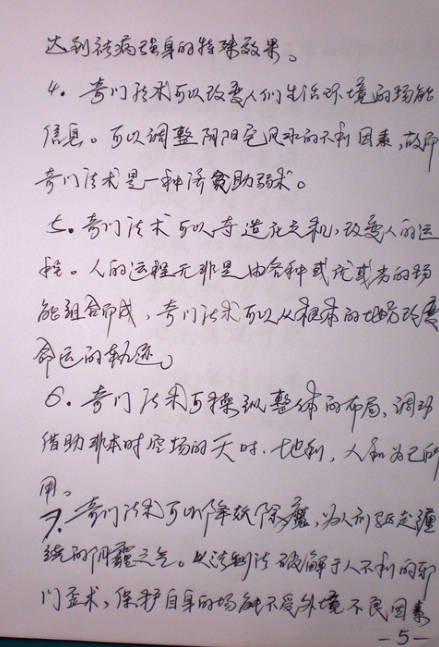 达到祛病强身的特殊效果。
4。奇门法术可以改变人们生活环境的场能
信息。可以调整阴阳宅风水的不利因素,故而
奇门法术是一种济贫助弱术。
5。奇门法术可以夺造化之机,改变人的运
程。人的运程无非是由各种或优或劣的场
能组合而成,奇门法术可以从根本的地方改变
命运的轨迹。
6。奇门法术可操纵整体的布局,调动
借助非本时空场的天时、地利,人和为己所
用。
7。奇门法术可以降妖除魔,为人们驱走缠
绕的阴霾之气。以法制法破解于人不利的邪
门歪术,保护自身的场能不受外境不良因素
-5-